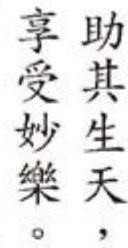 助其生天，
享受妙樂。